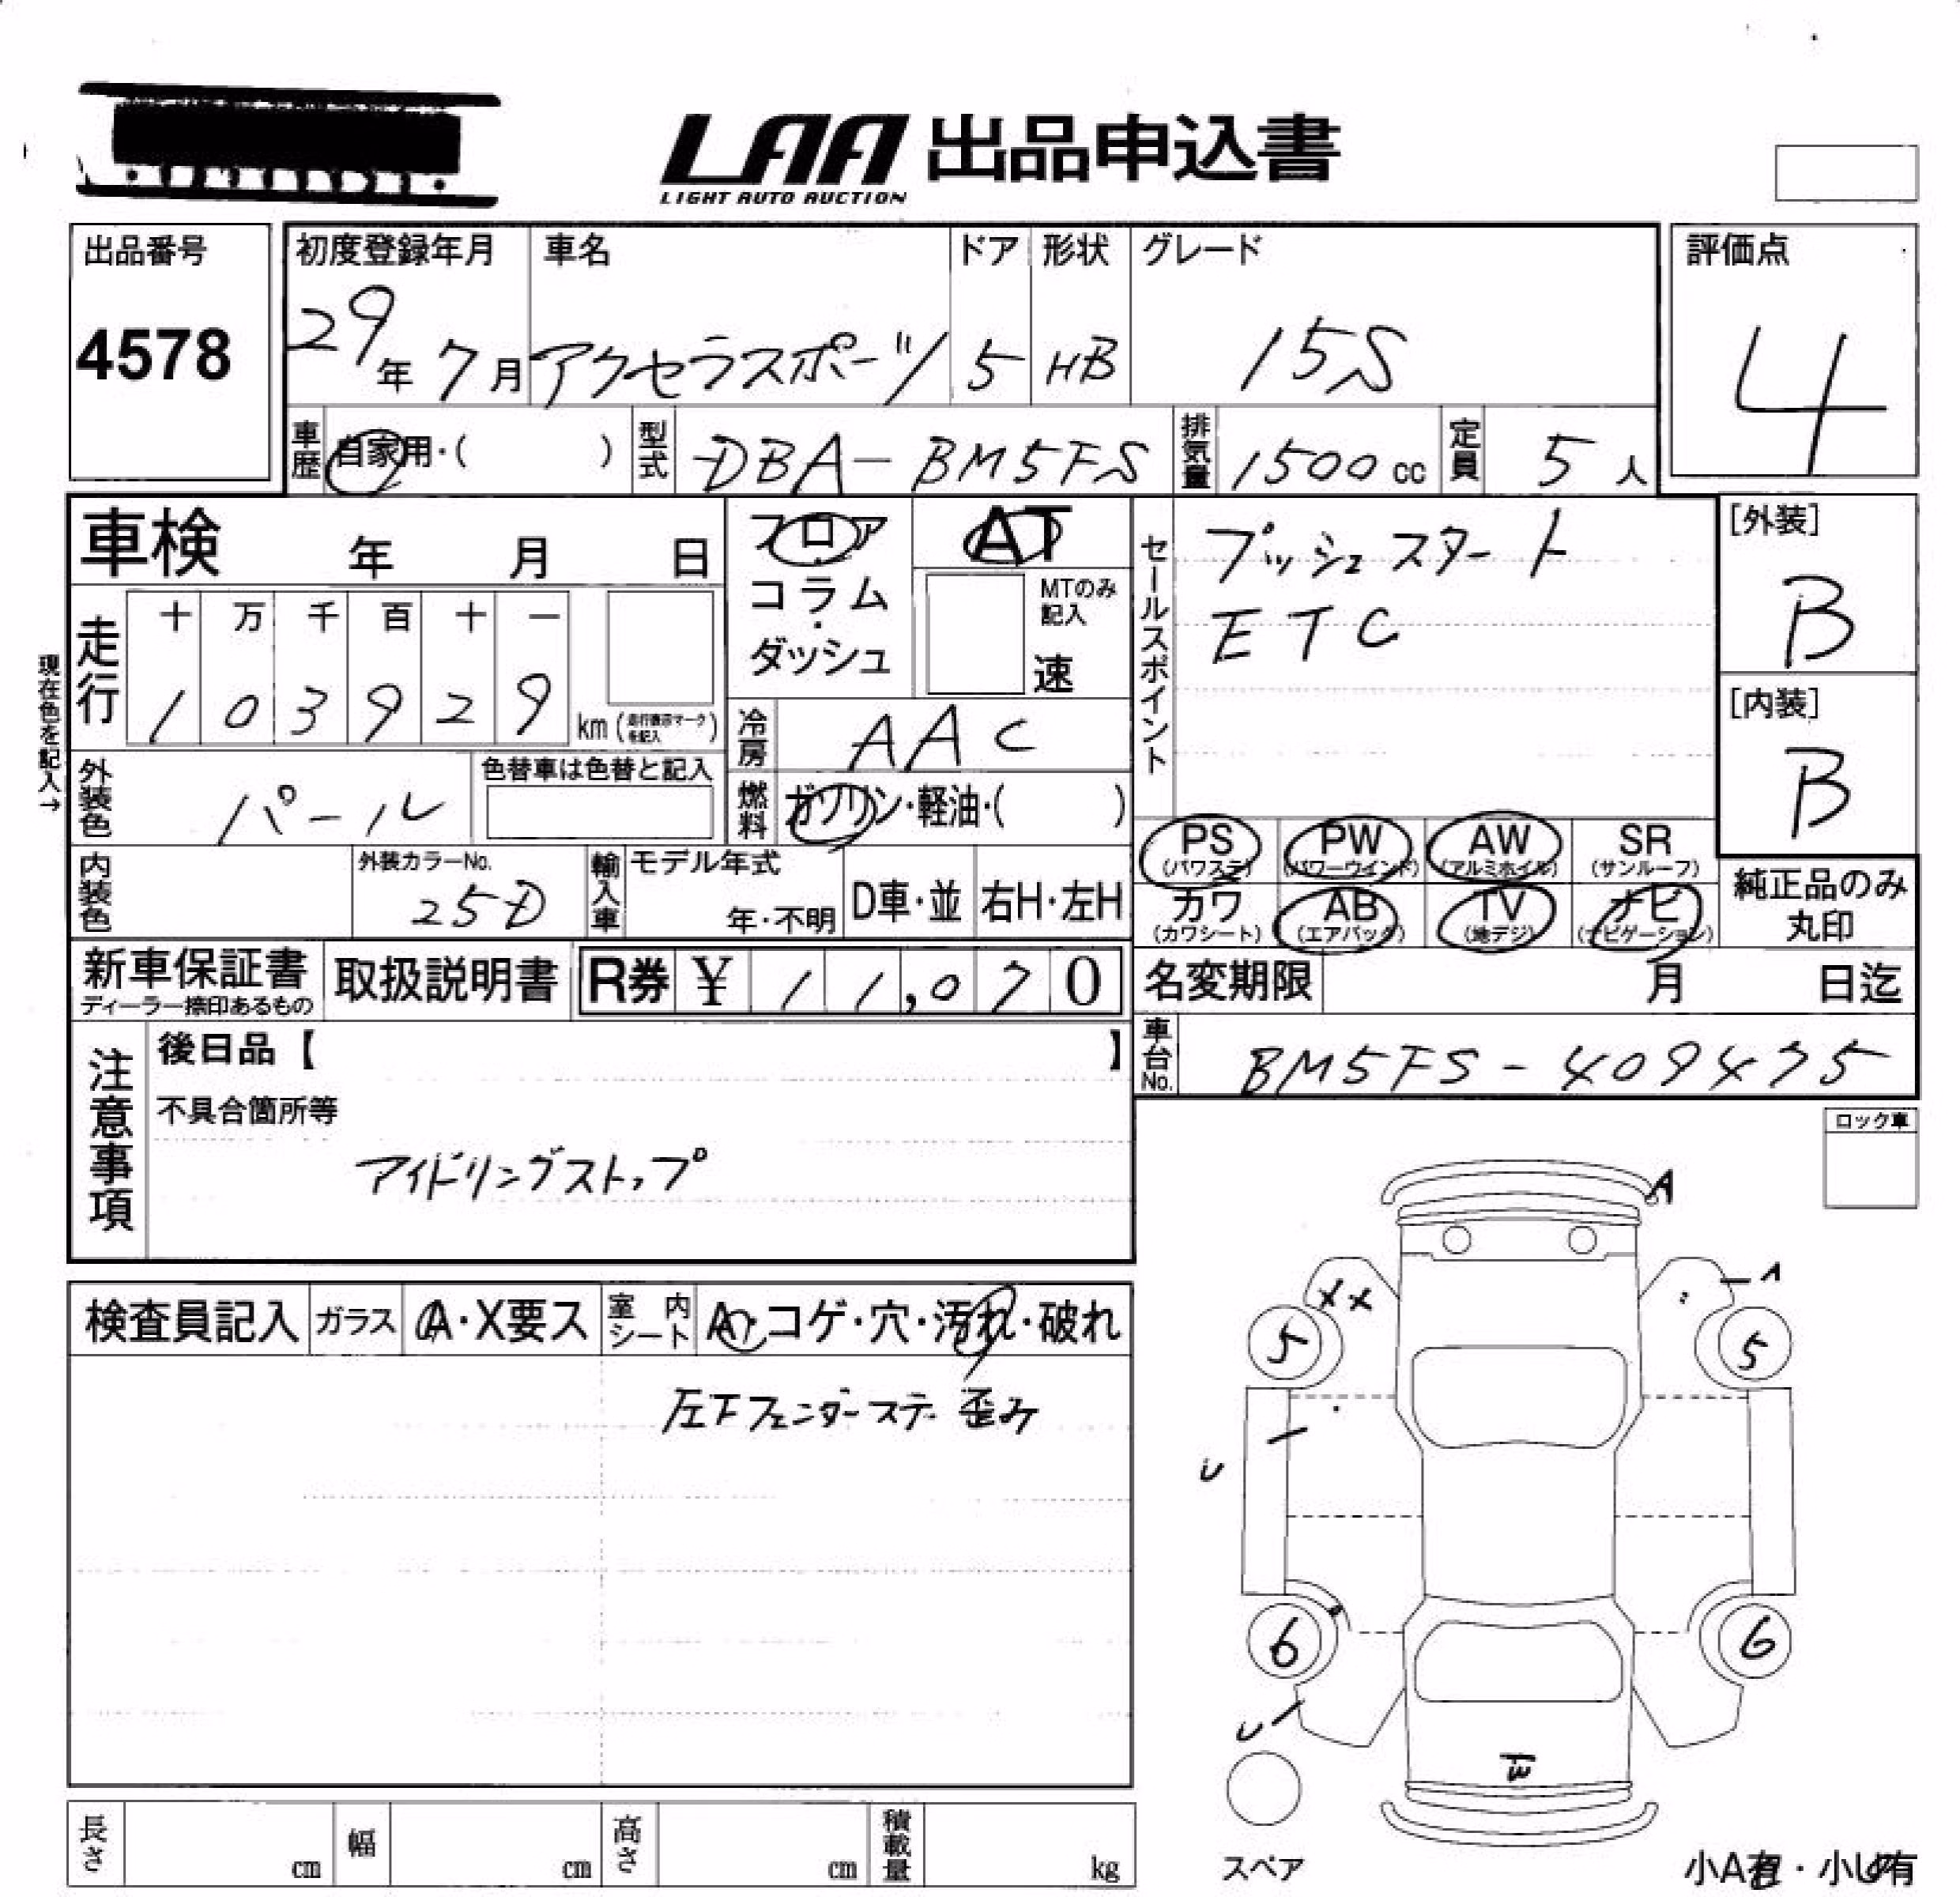 LAA 出品申込書
LIGHT AUTO AUCTION
出品番号
4578
初度登録年月
29年 7月
車名
アクセラスポーツ
ドア
5
形状
HB
グレード
15S
評価点
4
車歴 自家用・( )
型式 DBA-BM5FS
排気量 1500cc
定員 5人
車検 年 月 日
フロア・コラム・ダッシュ
AT
MTのみ記入
速
セールスポイント
プッシュスタート
ETC
[外装]
B
[内装]
B
現在色を記入→
走行
十 万 千 百 十 一
1 0 3 9 2 9 km (走行表示マークを記入)
冷房 AAC
外装色 パール
色替車は色替と記入
燃料 ガソリン・軽油・( )
PS (パワステ)
PW (パワーウインド)
AW (アルミホイル)
SR (サンルーフ)
カワ (カワシート)
AB (エアバック)
TV (地デジ)
ナビ (ナビゲーション)
純正品のみ丸印
内装色
外装カラーNo.
25D
輸入車
モデル年式
年・不明
D車・並
右H・左H
新車保証書
ディーラー捺印あるもの
取扱説明書
R券 ¥ 11,070
名変期限 月 日迄
車台No. BM5FS-409475
注意事項
後日品【 】
不具合箇所等
アイドリングストップ
ロック車
検査員記入
ガラス A・X要ス
室内シート A・コゲ・穴・汚れ・破れ
左Fフェンダーステー 歪み
A
A
XX
5
5
U
6
6
U
W
スペア
小A有・小U有
長さ cm
幅 cm
高さ cm
積載量 kg